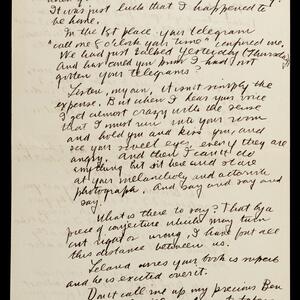 It was just luck that I happened to
be home.
In the 1st place your telegram
"call me & check your time" confused me.
We had just talked yesterday (Thursday)
And how could you know I had not
gotten your telegrams?
Listen, my own, it isn't simply the
expense. But when I hear your voice
I get almost crazy with the sense
that I must run into your room
and hold you and kiss you, and
see your sweet eyes, even if they are
angry. And then I can't do
anything but sit here and stare
at your melancholy and
photograph. And say and say and
say.
What is there to say? That by a
piece of conjecture which may turn
out right or wrong, I have put all
this distance between us.
Leland wires your book is superb
and he is excited over it.
Don't call me up my precious